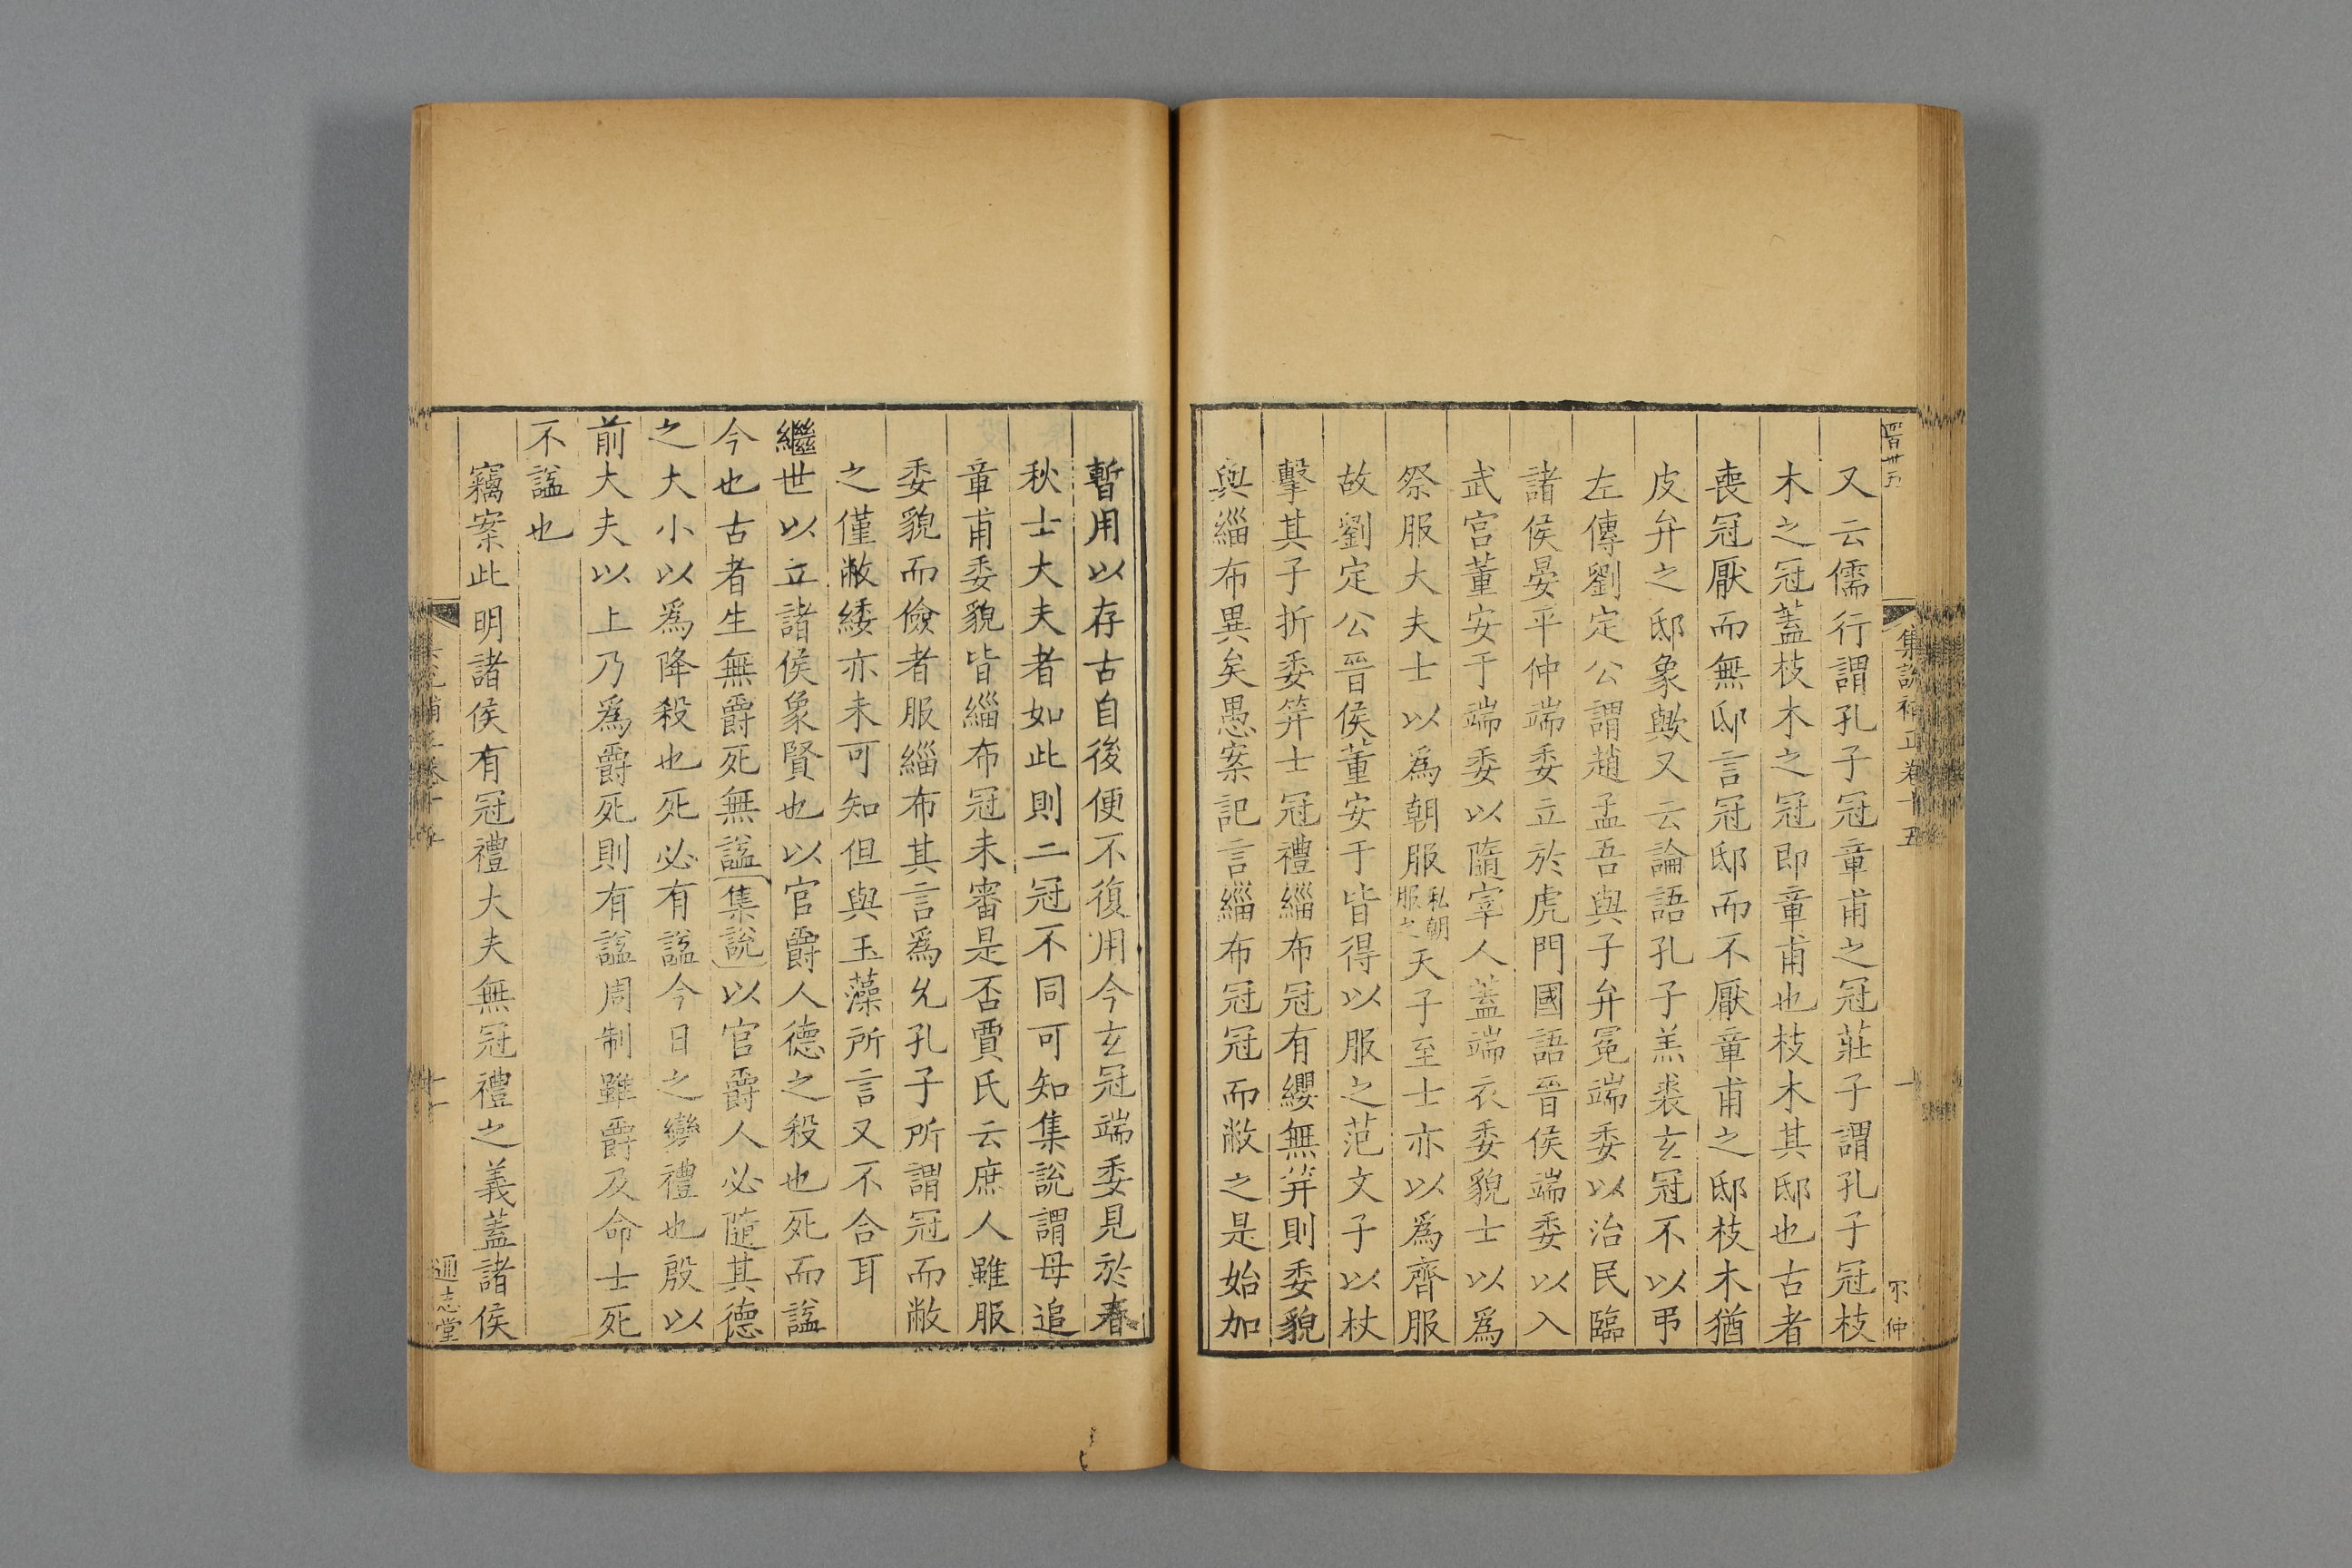 又云儒行謂孔子冠章甫之冠莊子謂孔子冠枝
木之冠蓋枝木之冠即章甫也枝木其邸也古者
喪冠厭而無邸言冠邸而不厭章甫之邸枝木猶
皮弁之邸象歟又云論語孔子羔裘玄冠不以弔
左傳劉定公謂趙孟吾與子弁冕端委以治民臨
諸侯晏平仲端委立於虎門國語晉侯端委以入
武宮董安于端委以隨宰人蓋端衣委貌士以爲
祭服大夫士以爲朝服私朝服之天子至士亦以爲齊服
故劉定公晉侯董安于皆得以服之范文子以杖
擊其子折委筓士冠禮緇布冠有纓無筓則委貌
與緇布異矣愚案記言緇布冠冠而敝之是始加
暫用以存古自後便不復用今玄冠端委見於春
秋士大夫者如此則二冠不同可知集說謂母追
章甫委貌皆緇布冠未審是否賈氏云庶人雖服
委貌而儉者服緇布其言爲允孔子所謂冠而敝
之僅敝緌亦未可知但與玉藻所言又不合耳
繼世以立諸侯象賢也以官爵人德之殺也死而諡
今也古者生無爵死無諡集說以官爵人必隨其德
之大小以爲降殺也死必有諡今日之變禮也殷以
前大夫以上乃爲爵死則有諡周制雖爵及命士死
不諡也
竊案此明諸侯有冠禮大夫無冠禮之義蓋諸侯
集說補正卷十五
通志堂